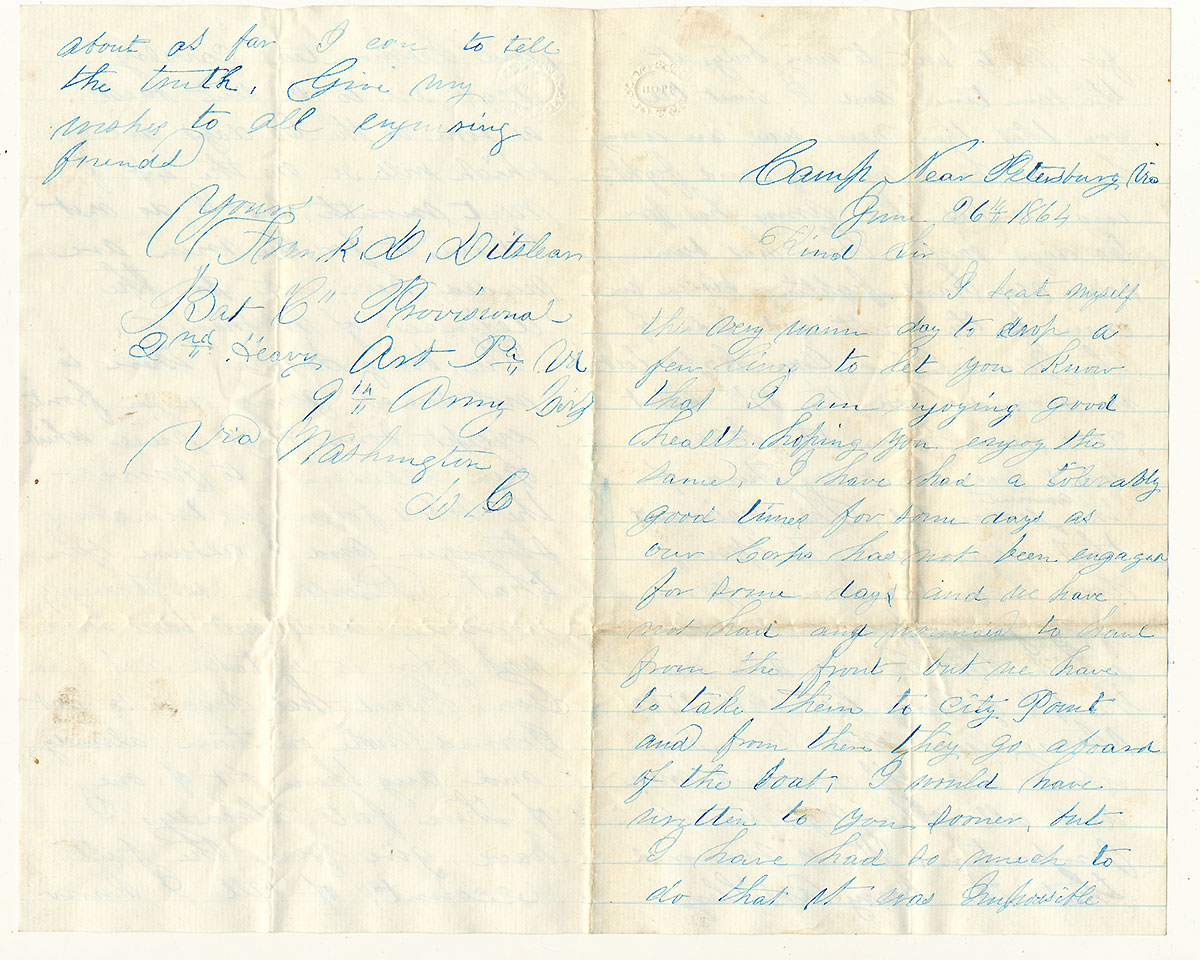 about as far I can to tell
the truth. Give my
wishes to all enquiring
friends
Yours
Frank. D.
Bat "C" Provisional
2nd Heavy Art Pa
9th Army
Via Washington
D C
Camp Near Petersburg Va
June 26th 1864
Kind Sir
I seat myself
this very warm day to drop a
few lines to let you know
that I am enjoying good
health. hoping you enjoy the
same, I have had a tolerably
good times for some days as
our Corps has not been engaged
for some days and we have
not had any wounded to haul
from the front, but we have
to take them to City Point
and from then they go aboard
of the boat, I would have
written to you sooner, but
I have had so much to
do that it was Impossible